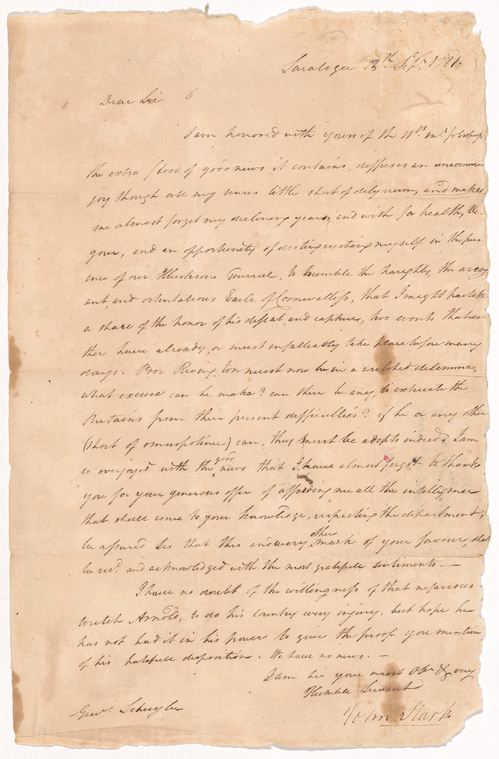 Saratoga 13th Sept. 1781
Dear Sir
I am honored with yours of the 11th ins.t
the extra flood of good news it contains, diffuses an uncommon
joy though all my senses little short of delyrium, and makes
me almost forget my declining years, and wish for health, vi
gour, and an opportunity of myself in the pres
ence of our Illustrious to humble the haughty, the arrog
ant, and ostentatious Earle of Cornwalless, that I might partake
a share of the honor of his defeat, and capture, two events that ei
ther have already, or must infalleably take place before many
days. Poor must now be in a dilemma,
what excuse can he make? can there be any, to extricate the
Bretains from their present difficulties? if he or any other
(short of omnopotince) can, they must be adepts indeed. I am
so overjoyed with the good news that I have almost forgot to thank
you for your generous offer of affording me all the intelligence
that shall come to your knowledge, respecting the department;
be assured Sir that this and every other mark of your favour, shall
be rec.d and acknowledged with the most gratefull sentiments. —
I have no doubt of the willingness of that nefarious
wretch Arnold, to do his country every injury, but hope he
has not had it in his power to give the proof you mention
of his hatefull disposition. We have no news. —
I am Sir your most Ob.t & very
Humble Servant
John Stark
Gen.l Schuyler